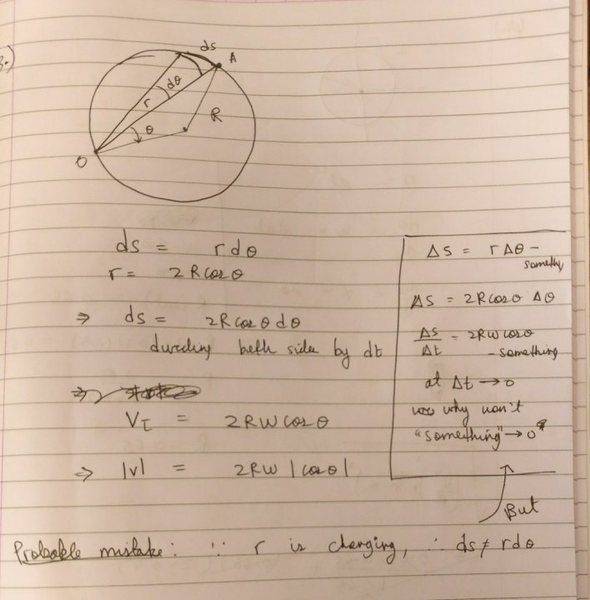 3.)
ds
A
dθ
r
R
θ
O
ds = r dθ
r = 2Rcosθ
⇒ ds = 2Rcosθ dθ
dividing both side by dt
⇒
V_I = 2RW cosθ
⇒ |v| = 2RW |cosθ|
Δs = rΔθ -
somethg
Δs = 2Rcosθ Δθ
Δs/Δt = 2RWcosθ
- something
at Δt → 0
why won't
"something" → 0?
But
Probable mistake: ∵ r is changing, ∴ ds ≠ rdθ